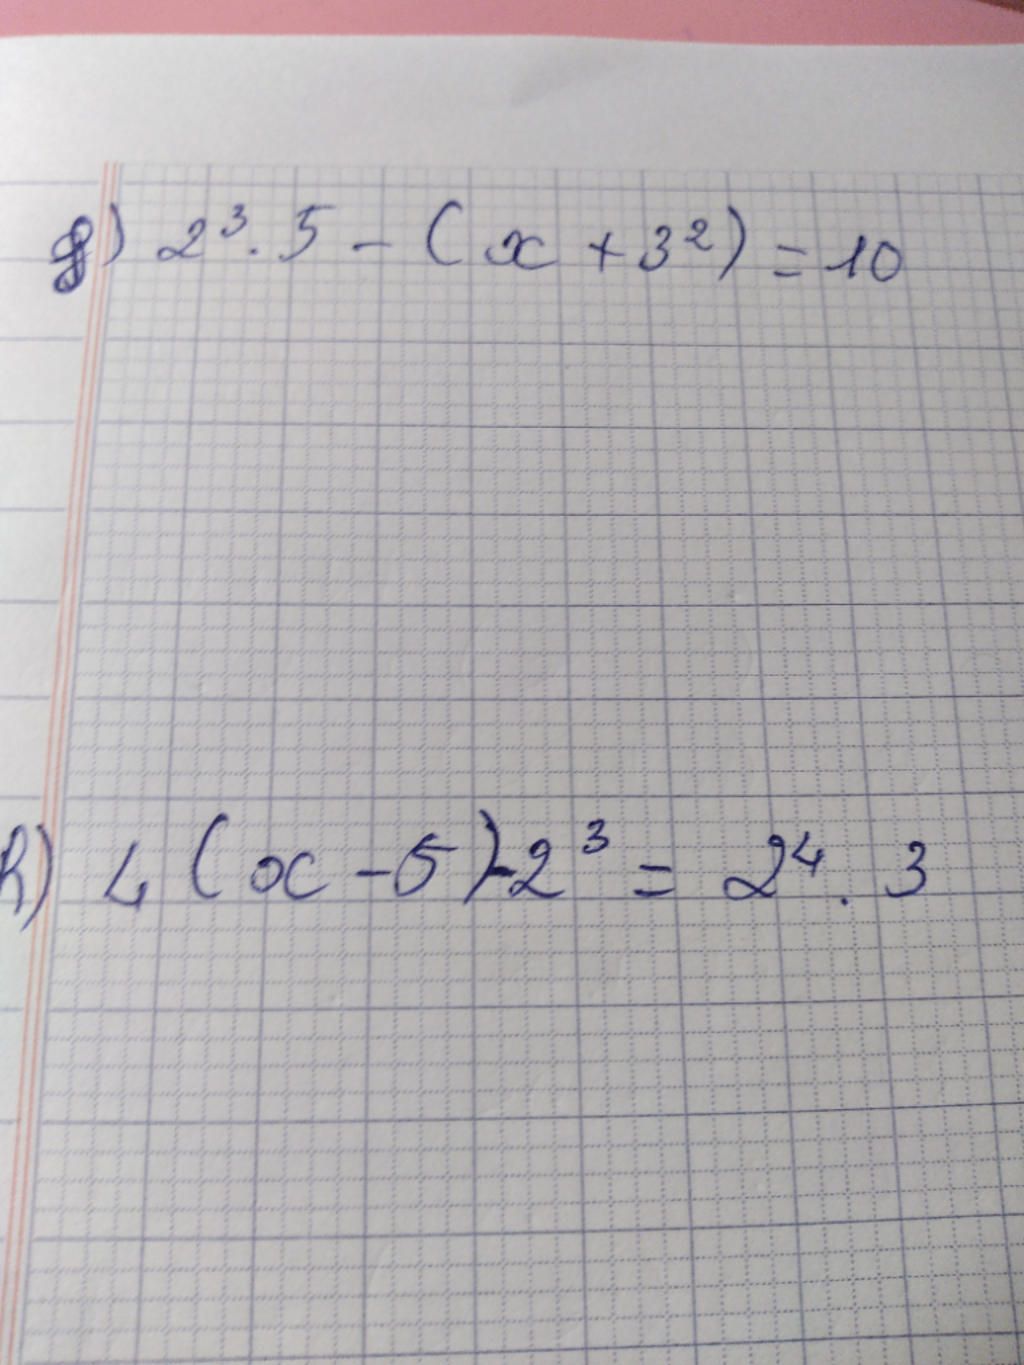 g) 2³ . 5 - (x + 3²) = 10
h) 4 (x - 5) - 2³ = 2⁴ . 3